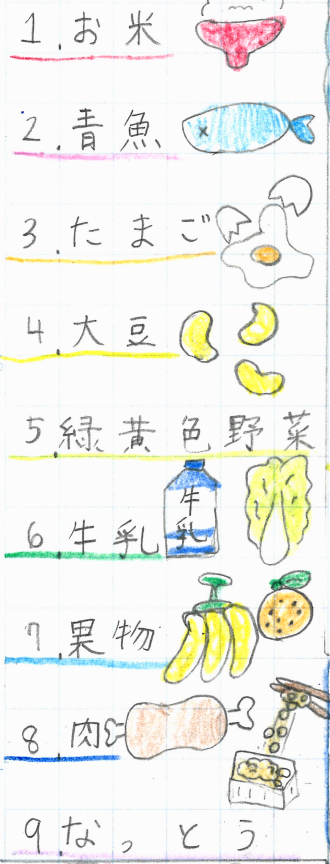 1.お米
2.青魚
3.たまご
4.大豆
5.緑黄色野菜
牛乳
6.牛乳
7.果物
8.肉
9.なっとう